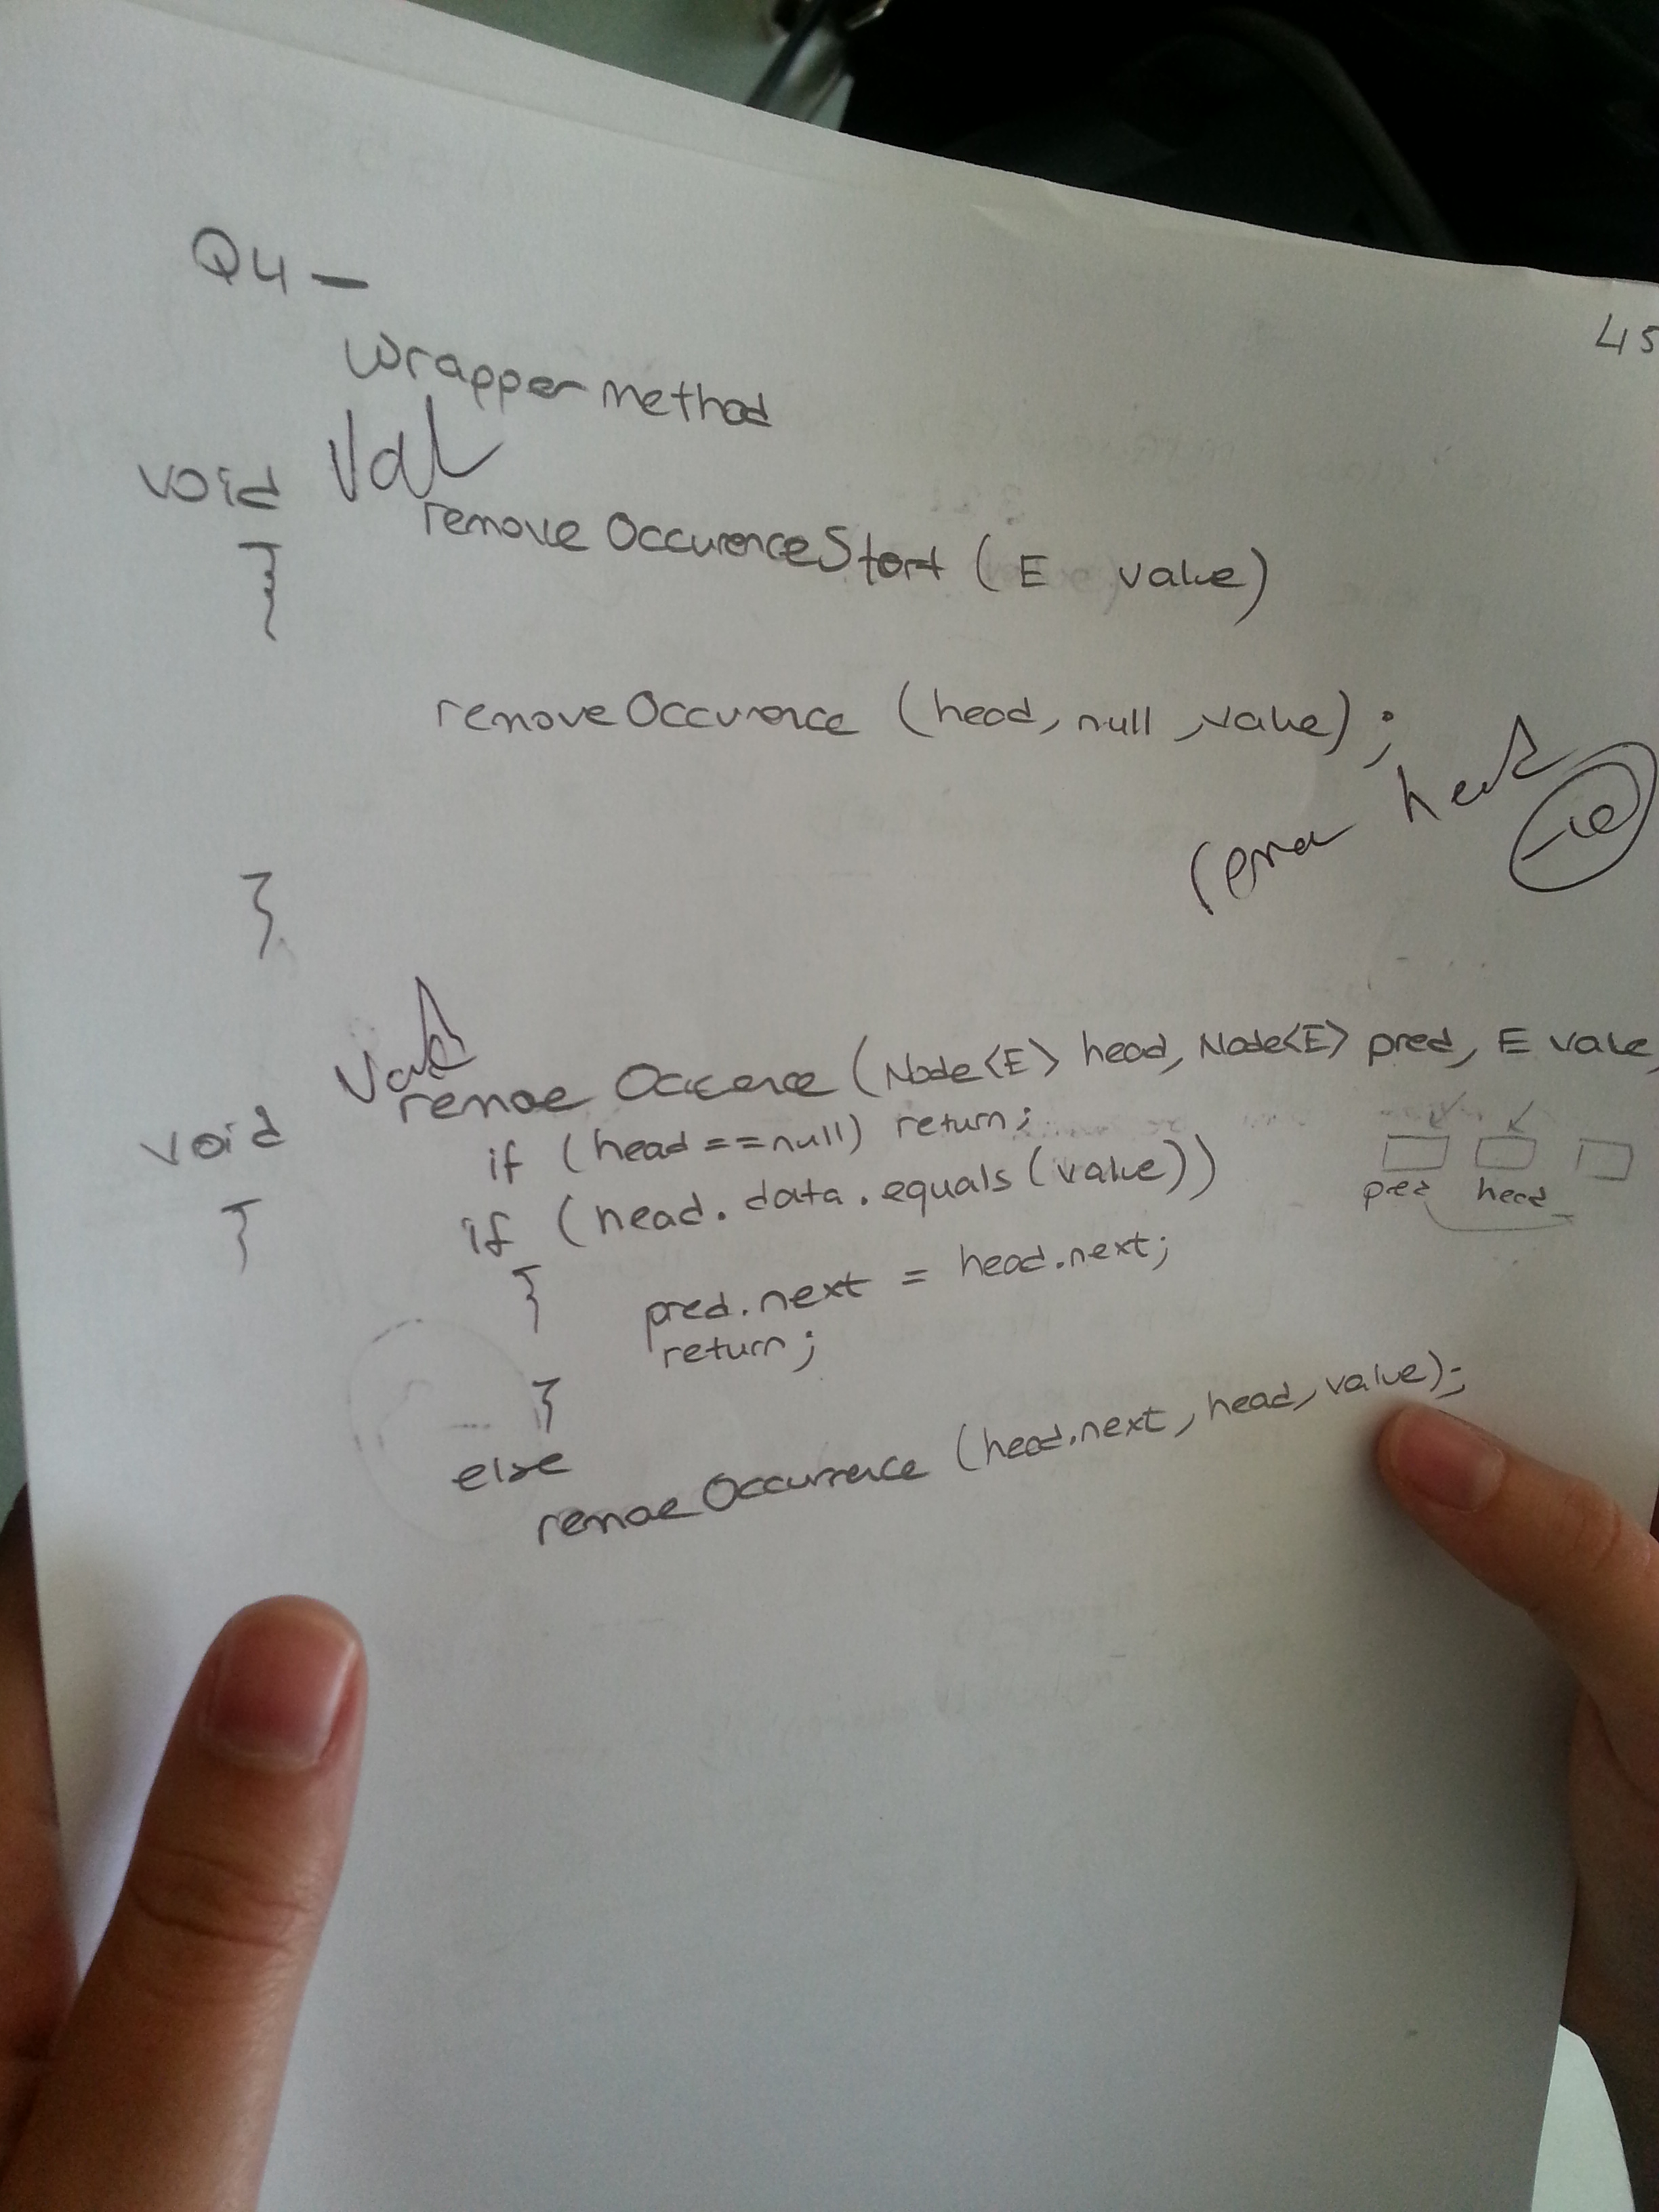 Q4 —
45
wrapper method
void
removeOccurenceStart ( E value)
{
removeOccurence (head, null, value);
head
-10
}
void
remove Occurence (Node<E> head, Node<E> pred, E value
{
if (head == null) return;
if (head.data.equals(value))
pred head
{
pred.next = head.next;
return;
}
else
removeOccurrence (head.next, head, value);